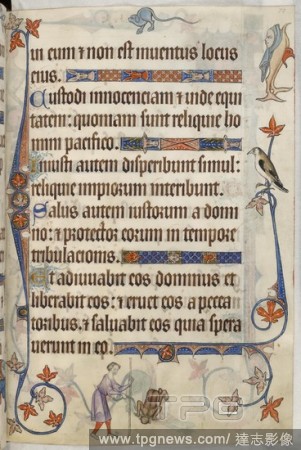 um eum ⁊ non est inuentus locus
eius.
Custodi innocenciam ⁊ uide equi
tatem: quoniam sunt reliquie ho
mini pacifico.
Iniusti autem disperibunt simul:
relique impiorum interibunt.
Salus autem iustorum a domi
no: ⁊ protector eorum in tempore
tribulacionis.
Et adiuuabit eos dominus et
liberabit eos: ⁊ eruet eos a pecca
toribus. ⁊ saluabit eos quia spera
uerunt in eo.
TPG
www.tpgnews.com/ 達志影像